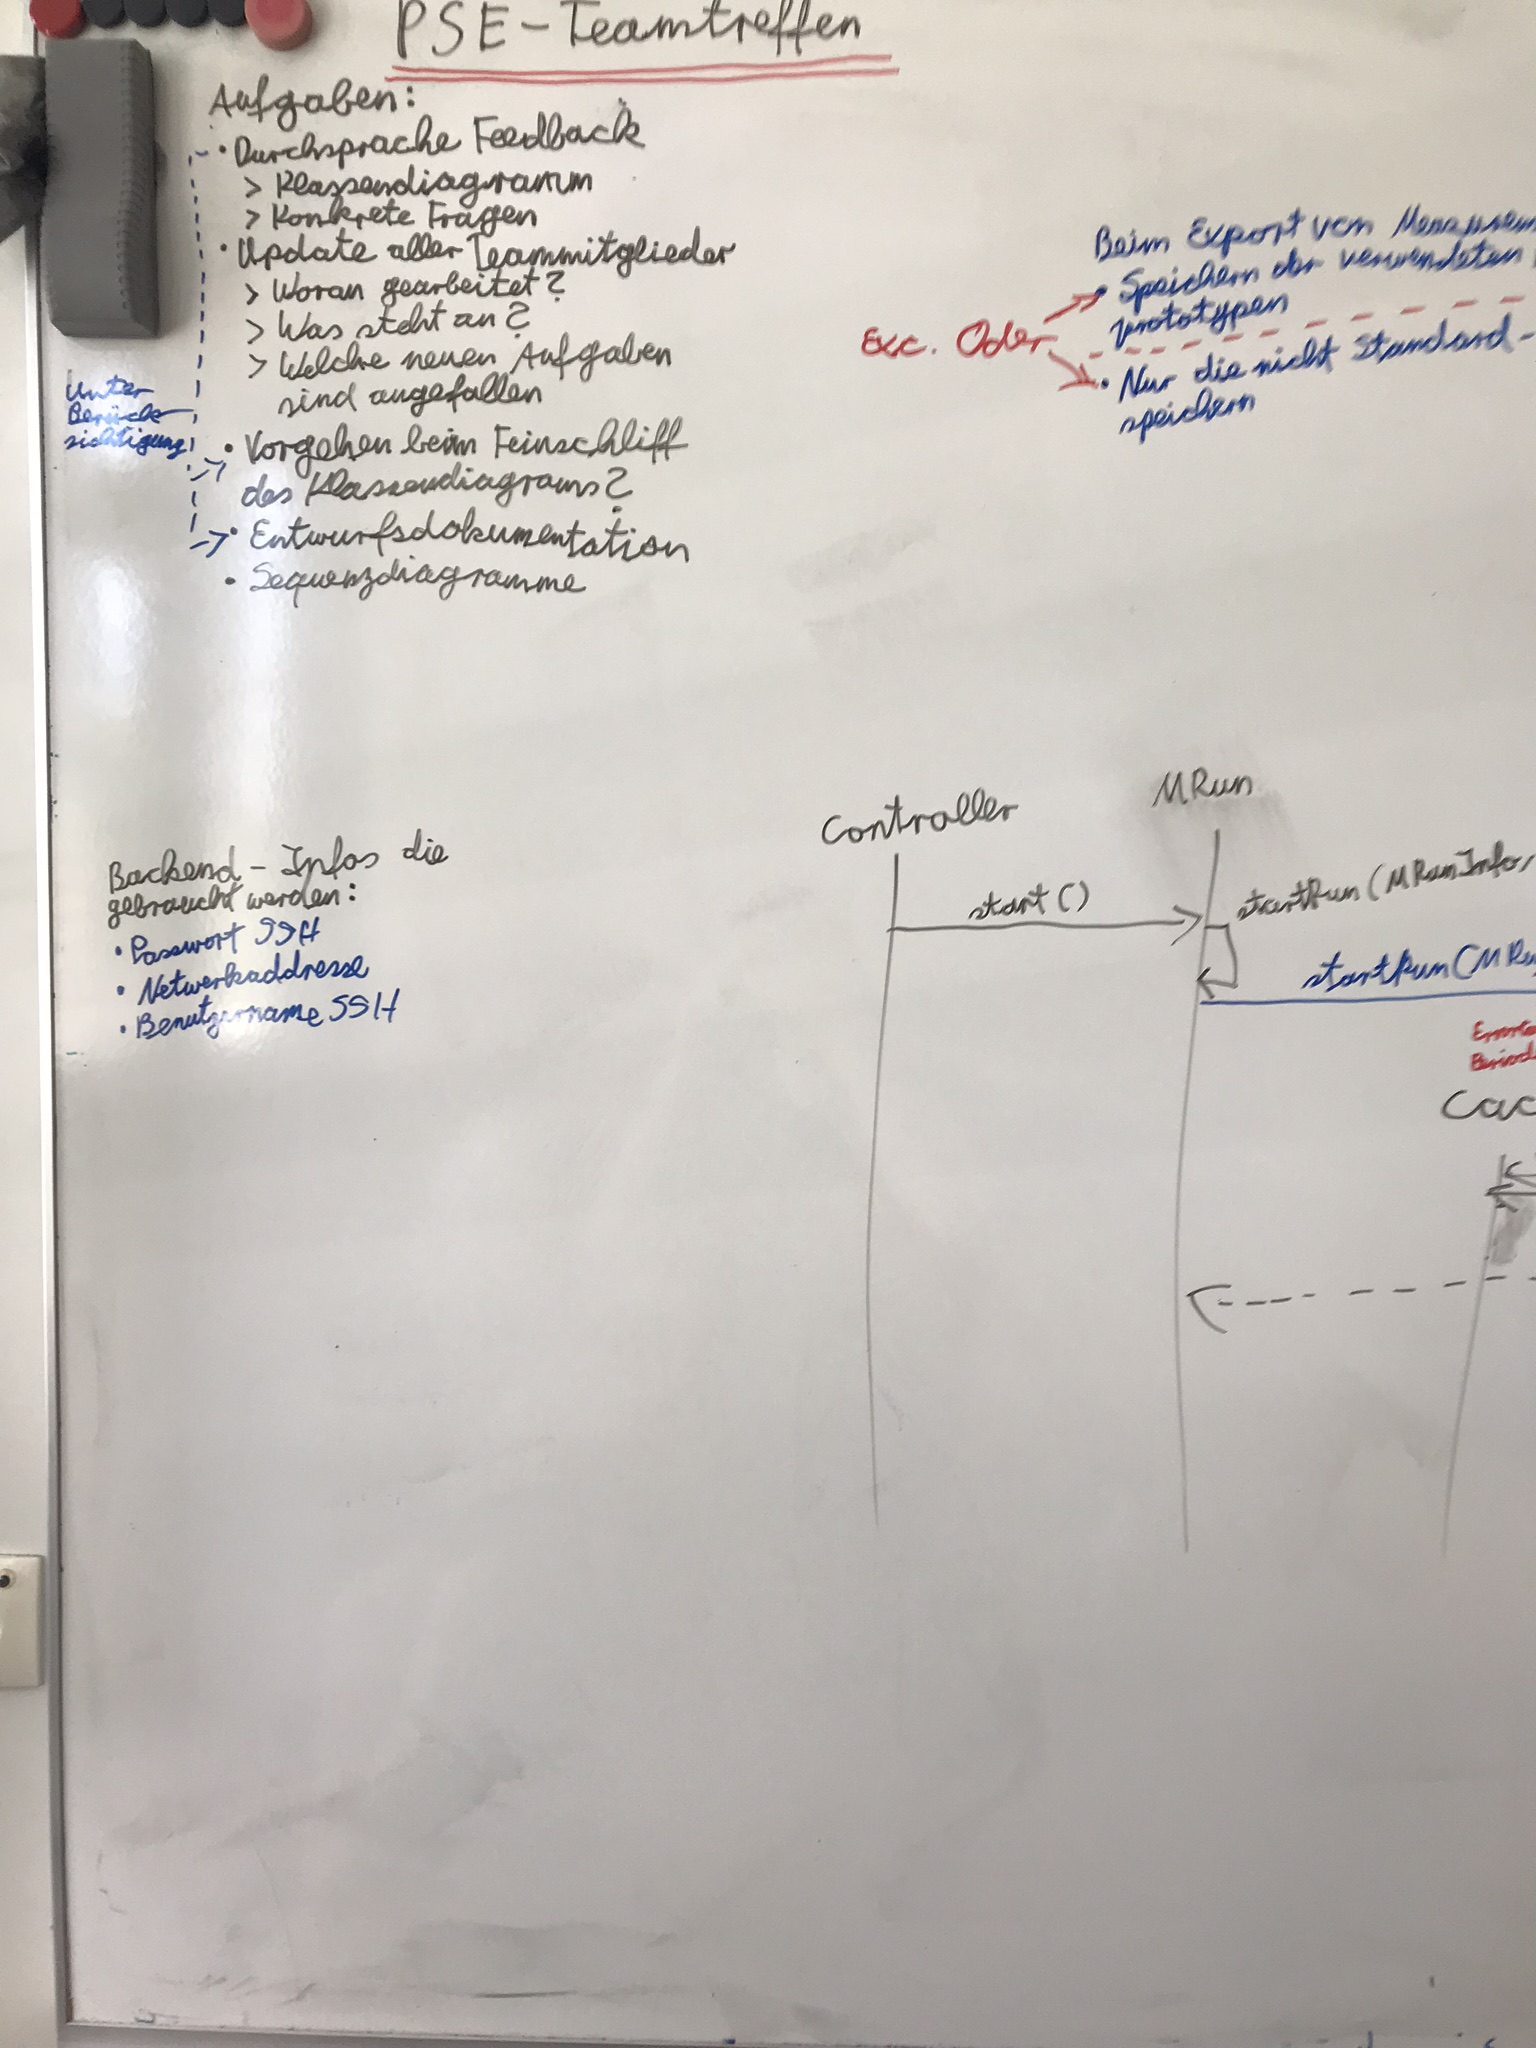 PSE-Teamtreffen
Aufgaben:
• Durchsprache Feedback
> Klassendiagramm
> Konkrete Fragen
• Update aller Teammitglieder
> Woran gearbeitet?
> Was steht an?
> Welche neuen Aufgaben
sind angefallen
• Vorgehen beim Feinschliff
des Klassendiagrams?
• Entwurfsdokumentation
• Sequenzdiagramme
Unter
Berück-
sichtigung
Beim Export von
• Speichern der verwendeten
prototypen
Exc. Oder
• Nur die nicht Standard-
speichern
Backend-Infos die
gebraucht werden:
• Passwort SSH
• Netwerkaddresse
• Benutzername SSH
Controller
MRun
start()
startRun(MRunInfo,
startRun(MRu
Cac